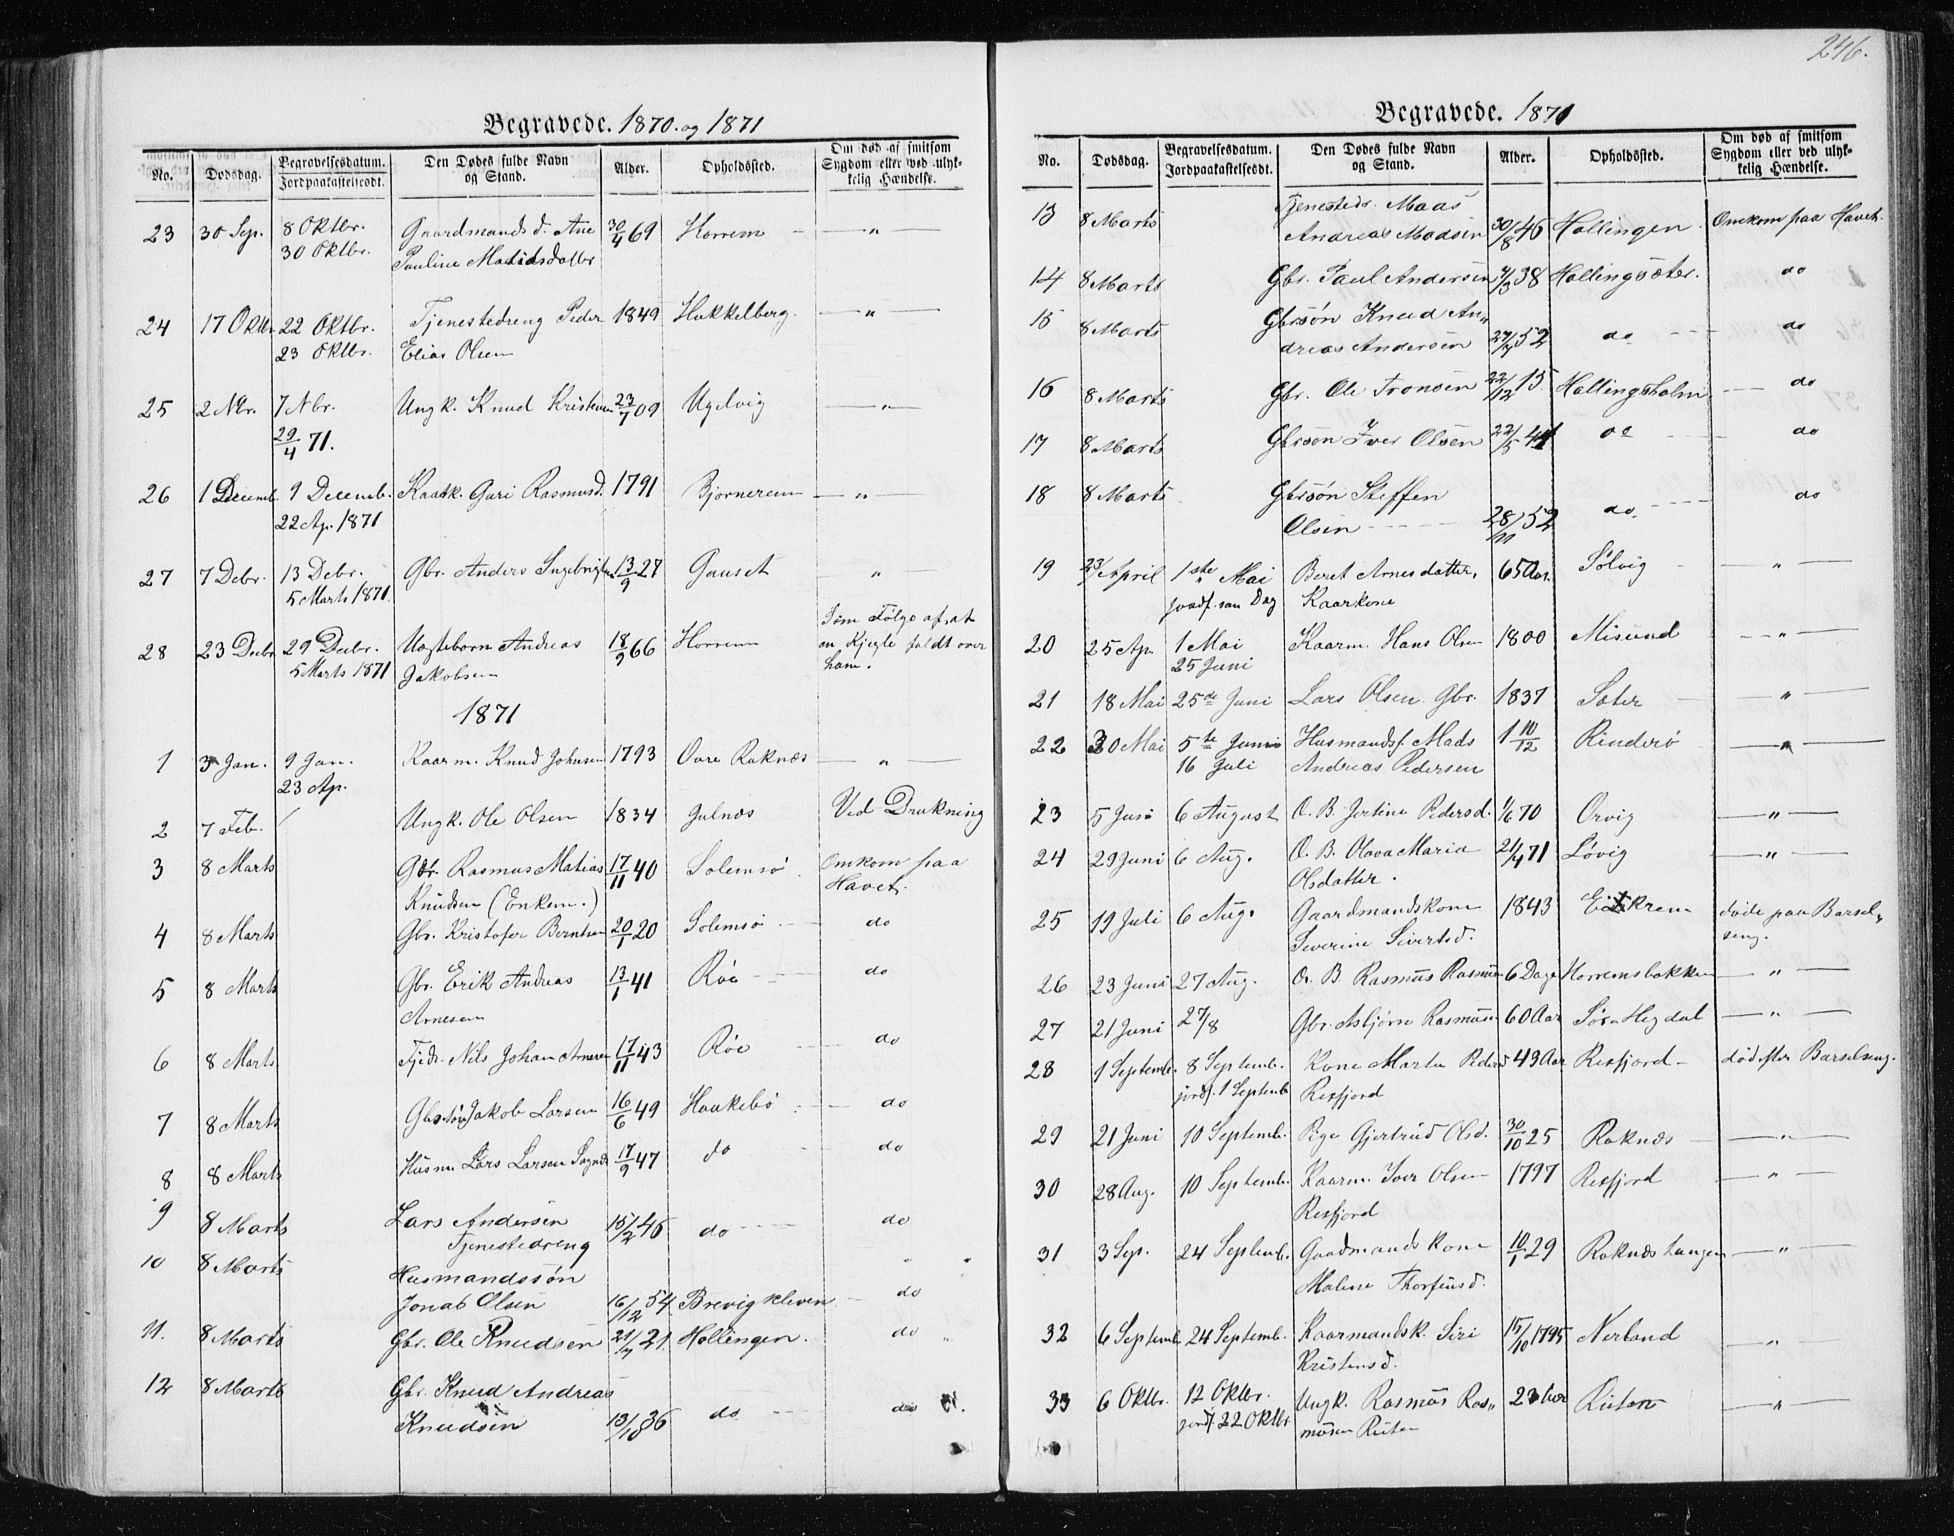 246.
Begravede. 1870. og 1871
No. | Dødsdag. | Begravelsesdatum. Jordpaakastelsesdt. | Den Dødes fulde Navn og Stand. | Alder. | Opholdssted. | Om død af smitsom Sygdom eller ved ulykkelig Hændelse.
23 | 30 Sep. | 8 Oktbr. 30 Oktbr. | Gaardmandsd. Ane Pauline Mathisdatter | 30/4 69 | Horrem | "
24 | 17 Oktbr | 22 Oktbr. 23 Oktbr. | Tjenestedreng Peder Elias Olsen | 1849 | Hukkelberg. | "
25 | 2 Nbr. | 7 Nbr. 29/4 71. | Ungk. Knud Kristensen | 23/7 09 | Ugelvig | "
26 | 1 Decemb. | 9 Decemb. 22 Ap. 1871 | Kaark. Guri Rasmusd. | 1791 | Bjørnerem | "
27 | 7 Debr. | 13 Debr. 5 Marts 1871. | Gbr. Anders Ingebrigtsen | 13/9 27 | Gauset | "
28 | 23 Debr | 29 Debr. 5 Marts 1871 | Andreas Jakobsen | 18/9 66 | Horrem | Som Følge af, at en Kjegle faldt over ham.
1871
1 | 3 Jan. | 9 Jan. 23 Ap. | Kaarm. Knud Johnsen | 1793 | Ovre Raknæs | "
2 | 7 Feb. | Ungk. Ole Olsen | 1834 | Julnæs | Ved Drukning
3 | 8 Marts | Gbr. Rasmus Matias Knudsen (Enkem.) | 17/11 40 | Solemsø | Omkom paa Havet.
4 | 8 Marts | Gbr. Kristofer Berntsen | 20/1 20 | Solemsø | do
5 | 8 Marts | Gbr. Erik Andreas Arnesen | 13/1 41 | Røe | do
6 | 8 Marts | Tjedr. Nils Johan Arnesen | 17/11 43 | Røe | do
7 | 8 Marts | Gbrsøn Jakob Larsen | 16/6 49 | Haukebø | do
8 | 8 Marts | Husm. Lars Larsen | 17/9 47 | do | do
9 | 8 Marts | Lars Andersen Tjenestedreng | 15/2 46 | do | do
10 | 8 Marts | Husmandssøn Jonas Olsen | 16/12 54 | Brevigkleven | do
11. | 8 Marts | Gbr. Ole Knudsen | 21/7 21 | Hollingen. | do
12 | 8 Marts | Gbr. Knud Andreas Knudsen | 13/10 36 | do | do
Begravede. 1871
No. | Dødsdag. | Begravelsesdatum. Jordpaakastelsesdt. | Den Dødes fulde Navn og Stand. | Alder. | Opholdssted. | Om død af smitsom Sygdom eller ved ulykkelig Hændelse.
13 | 8 Marts | Tjenestedr. Maas Andreas Madsen | 30/8 46 | Hollingen | Omkom paa Havet.
14 | 8 Marts | Gbr. Paul Andersen | 4/3 38 | Hollingsæter. | do
15 | 8 Marts | Gbrsøn Knud Andreas Andersen | 27/7 52 | do | do
16 | 8 Marts | Gbr. Ole Tronsen | 22/12 15 | Hollingsholm | do
17 | 8 Marts | Gbrsøn Iver Olsen | 22/5 44 | do | do
18 | 8 Marts | Gbrsøn Steffen Olsen | 28/11 52 | do | do
19 | 23/ April | 1ste Mai jordf. sam Dag | Beret Arnesdatter, Kaarkone | 65 Aar. | Sølvig | "
20 | 25 Ap. | 1 Mai 25 Juni | Kaarm. Hans Olsen | 1800 | Misund | "
21 | 18 Mai | 25de Juni | Lars Olsen Gbr. | 1837 | Sæter | "
22 | 30 Mai | 5te Juni 16 Juli | Husmandsf. Mads Andreas Pedersen | 1 10/12 | Rinderø | "
23 | 5 Juni | 6 August | O. B. Jertine Pedersd. | 1/6 70 | Orvig | "
24 | 29 Juni | 6 Aug. | O. B. Olava Maria Olsdatter. | 21/4 71 | Løvig | "
25 | 19 Juli | 6 Aug. | Gaardmandskone Severine Sivertsd. | 1843 | Eikrem | døde paa Barselseng.
26 | 23 Juni | 27 Aug. | O. B. Rasmus Rasmussen | 6 Dage | Horremsbakken | "
27 | 21 Juni | 27/8 | Gbr. Asbjørn Rasmussen | 60 Aar | Sør-Hegdal | "
28 | 1 Septemb. | 8 Septemb. jordf. 1 Septemb | Kone Marta Pedersd Rexfjord | 43 Aar | Rexfjord | død efter Barselseng.
29 | 21 Juni | 10 Septemb. | Pige Gjertrud Olsd. | 30/10 25 | Raknæs | "
30 | 28 Aug. | 10 Septemb. | Kaarm. Iver Olsen Rexfjord | 1797 | Rexfjord | "
31 | 3 Sep. | 24 Septemb. | Gaadmandskone Malene Thorfinsd. | 10/1 29 | Raknestangen | "
32 | 6 Septemb | 24 Septemb. | Kaarmandsk. Siri Kristensd. | 15/10 1795 | Nerland | "
33 | 6 Oktbr. | 12 Oktbr. jordf. 22 Oktbr | Ungk. Rasmus Rasmusen Riiten | 23 Aar | Riiten | "